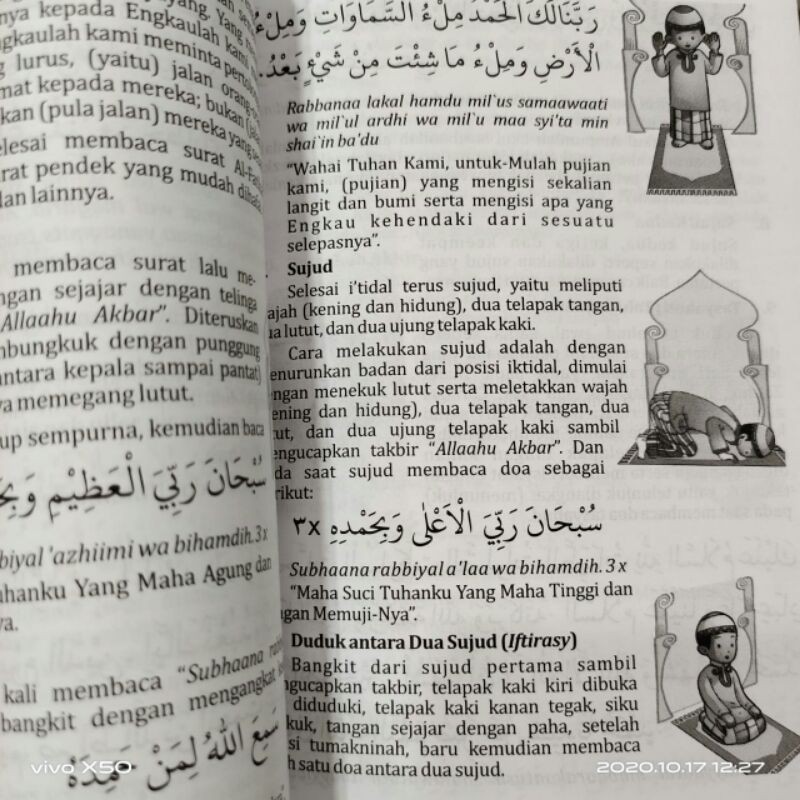 nya kepada Engkaulah kami
ngkaulah kami meminta
lurus, (yaitu) jalan
mat kepada mereka; bukan
kan (pula jalan) mereka yang
elesai membaca surat
rat pendek yang mudah
dan lainnya.
membaca surat lalu me-
ngan sejajar dengan telinga
Allaahu Akbar”. Diteruskan
mbungkuk dengan punggung
antara kepala sampai pantat)
ya memegang lutut.
up sempurna, kemudian baca
سُبْحَانَ رَبِّيَ الْعَظِيْمِ
biyal 'azhiimi wa bihamdih. 3x
uhanku Yang Maha Agung dan
ya.
kali membaca “Subhaana
bangkit dengan mengangkat
سَمِعَ اللهُ لِمَنْ حَمِدَهُ
رَبَّنَالَكَ الْحَمْدُ مِلْءُ السَّمَاوَاتِ وَمِلْءُ
الْأَرْضِ وَمِلْءُ مَا شِئْتَ مِنْ شَيْءٍ بَعْدُ.
Rabbanaa lakal hamdu mil`us samaawaati
wa mil`ul ardhi wa mil`u maa syi'ta min
shai`in ba'du
“Wahai Tuhan Kami, untuk-Mulah pujian
kami, (pujian) yang mengisi sekalian
langit dan bumi serta mengisi apa yang
Engkau kehendaki dari sesuatu
selepasnya”.
Sujud
Selesai i’tidal terus sujud, yaitu meliputi
ajah (kening dan hidung), dua telapak tangan,
ua lutut, dan dua ujung telapak kaki.
Cara melakukan sujud adalah dengan
enurunkan badan dari posisi iktidal, dimulai
ngan menekuk lutut serta meletakkan wajah
ening dan hidung), dua telapak tangan, dua
ut, dan dua ujung telapak kaki sambil
engucapkan takbir “Allaahu Akbar”. Dan
da saat sujud membaca doa sebagai
rikut:
سُبْحَانَ رَبِّيَ الْاَعْلٰى وَبِحَمْدِهِ ٣x
Subhaana rabbiyal a'laa wa bihamdih. 3 x
“Maha Suci Tuhanku Yang Maha Tinggi dan
ngan Memuji-Nya”.
Duduk antara Dua Sujud (Iftirasy)
Bangkit dari sujud pertama sambil
ngucapkan takbir, telapak kaki kiri dibuka
diduduki, telapak kaki kanan tegak, siku
kuk, tangan sejajar dengan paha, setelah
si tumakninah, baru kemudian membaca
h satu doa antara dua sujud.
vivo X50
2020.10.17 12:27